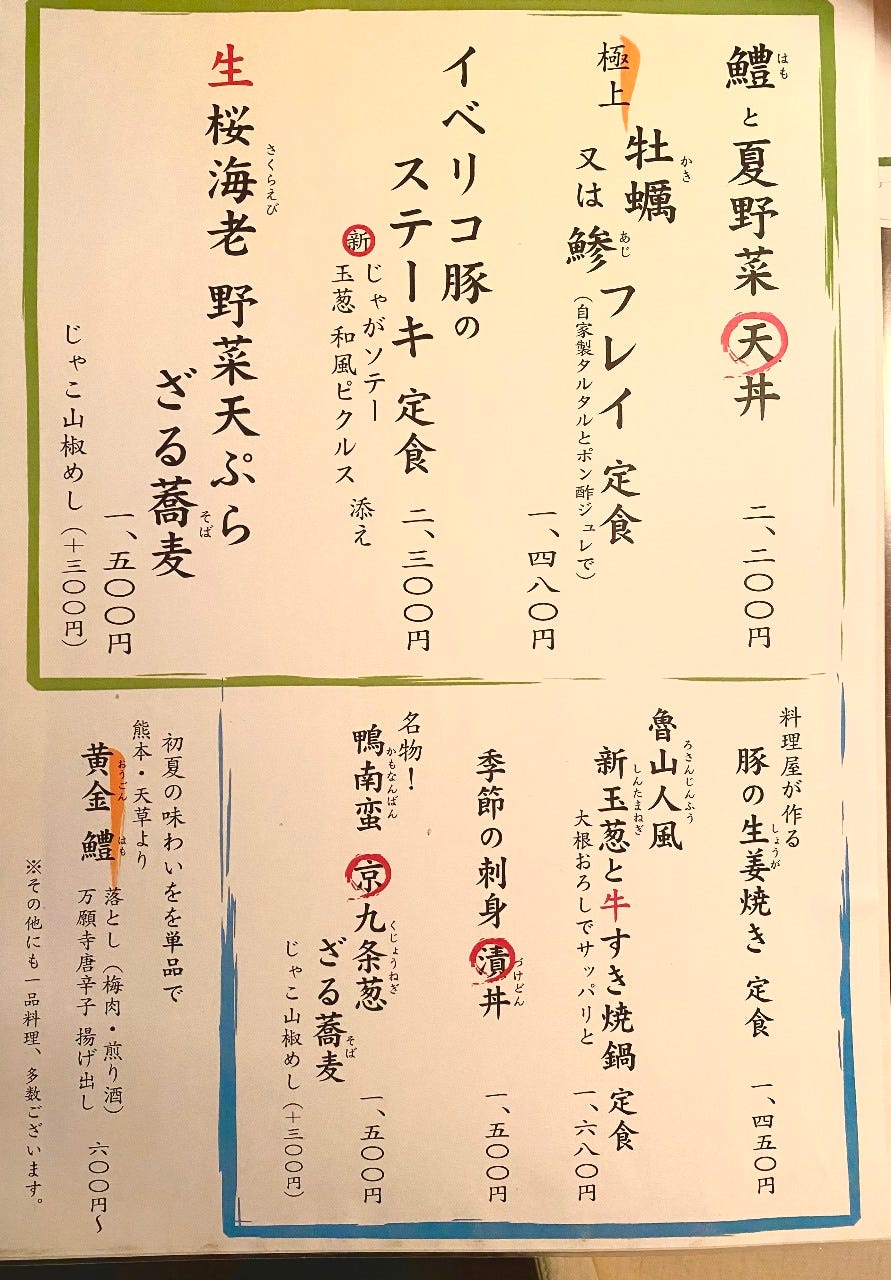 鱧と夏野菜天丼
はも
二、二〇〇円
極上
牡蠣
かき
又は鯵フレイ 定食
あじ
(自家製タルタルとポン酢ジュレで)
一、四八〇円
イベリコ豚の
ステーキ 定食
二、三〇〇円
新じゃがソテー
玉葱 和風ピクルス
添え
生桜海老 野菜天ぷら
さくらえび
ざる蕎麦
そば
一、五〇〇円
じゃこ山椒めし(+三〇〇円)
料理屋が作る
豚の生姜焼き 定食
しょうが
一、四五〇円
魯山人風
ろさんじんふう
新玉葱と牛すき焼鍋 定食
しんたまねぎ
大根おろしでサッパリと
一、六八〇円
季節の刺身 漬丼
づけどん
一、五〇〇円
名物!
鴨南蛮 京九条葱
かもなんばん
くじょうねぎ
ざる蕎麦
そば
一、五〇〇円
じゃこ山椒めし(+三〇〇円)
初夏の味わいをを単品で
熊本・天草より
黄金 鱧
おうごん はも
落とし(梅肉・煎り酒)
万願寺唐辛子 揚げ出し
六〇〇円〜
※その他にも一品料理、多数ございます。